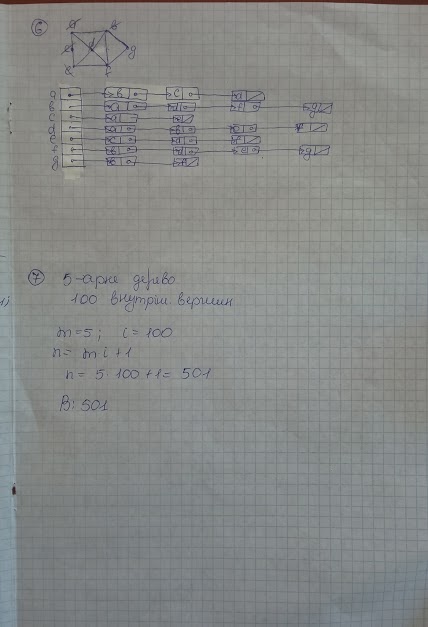 6
a b
c d g
e f
a b c d
b a d f g
c a e
d a b e f
e c d f
f b d e g
g b f
7 5-арне дерево
100 внутріш. вершин
m=5; i=100
n= mi+1
n= 5·100+1= 501
В: 501